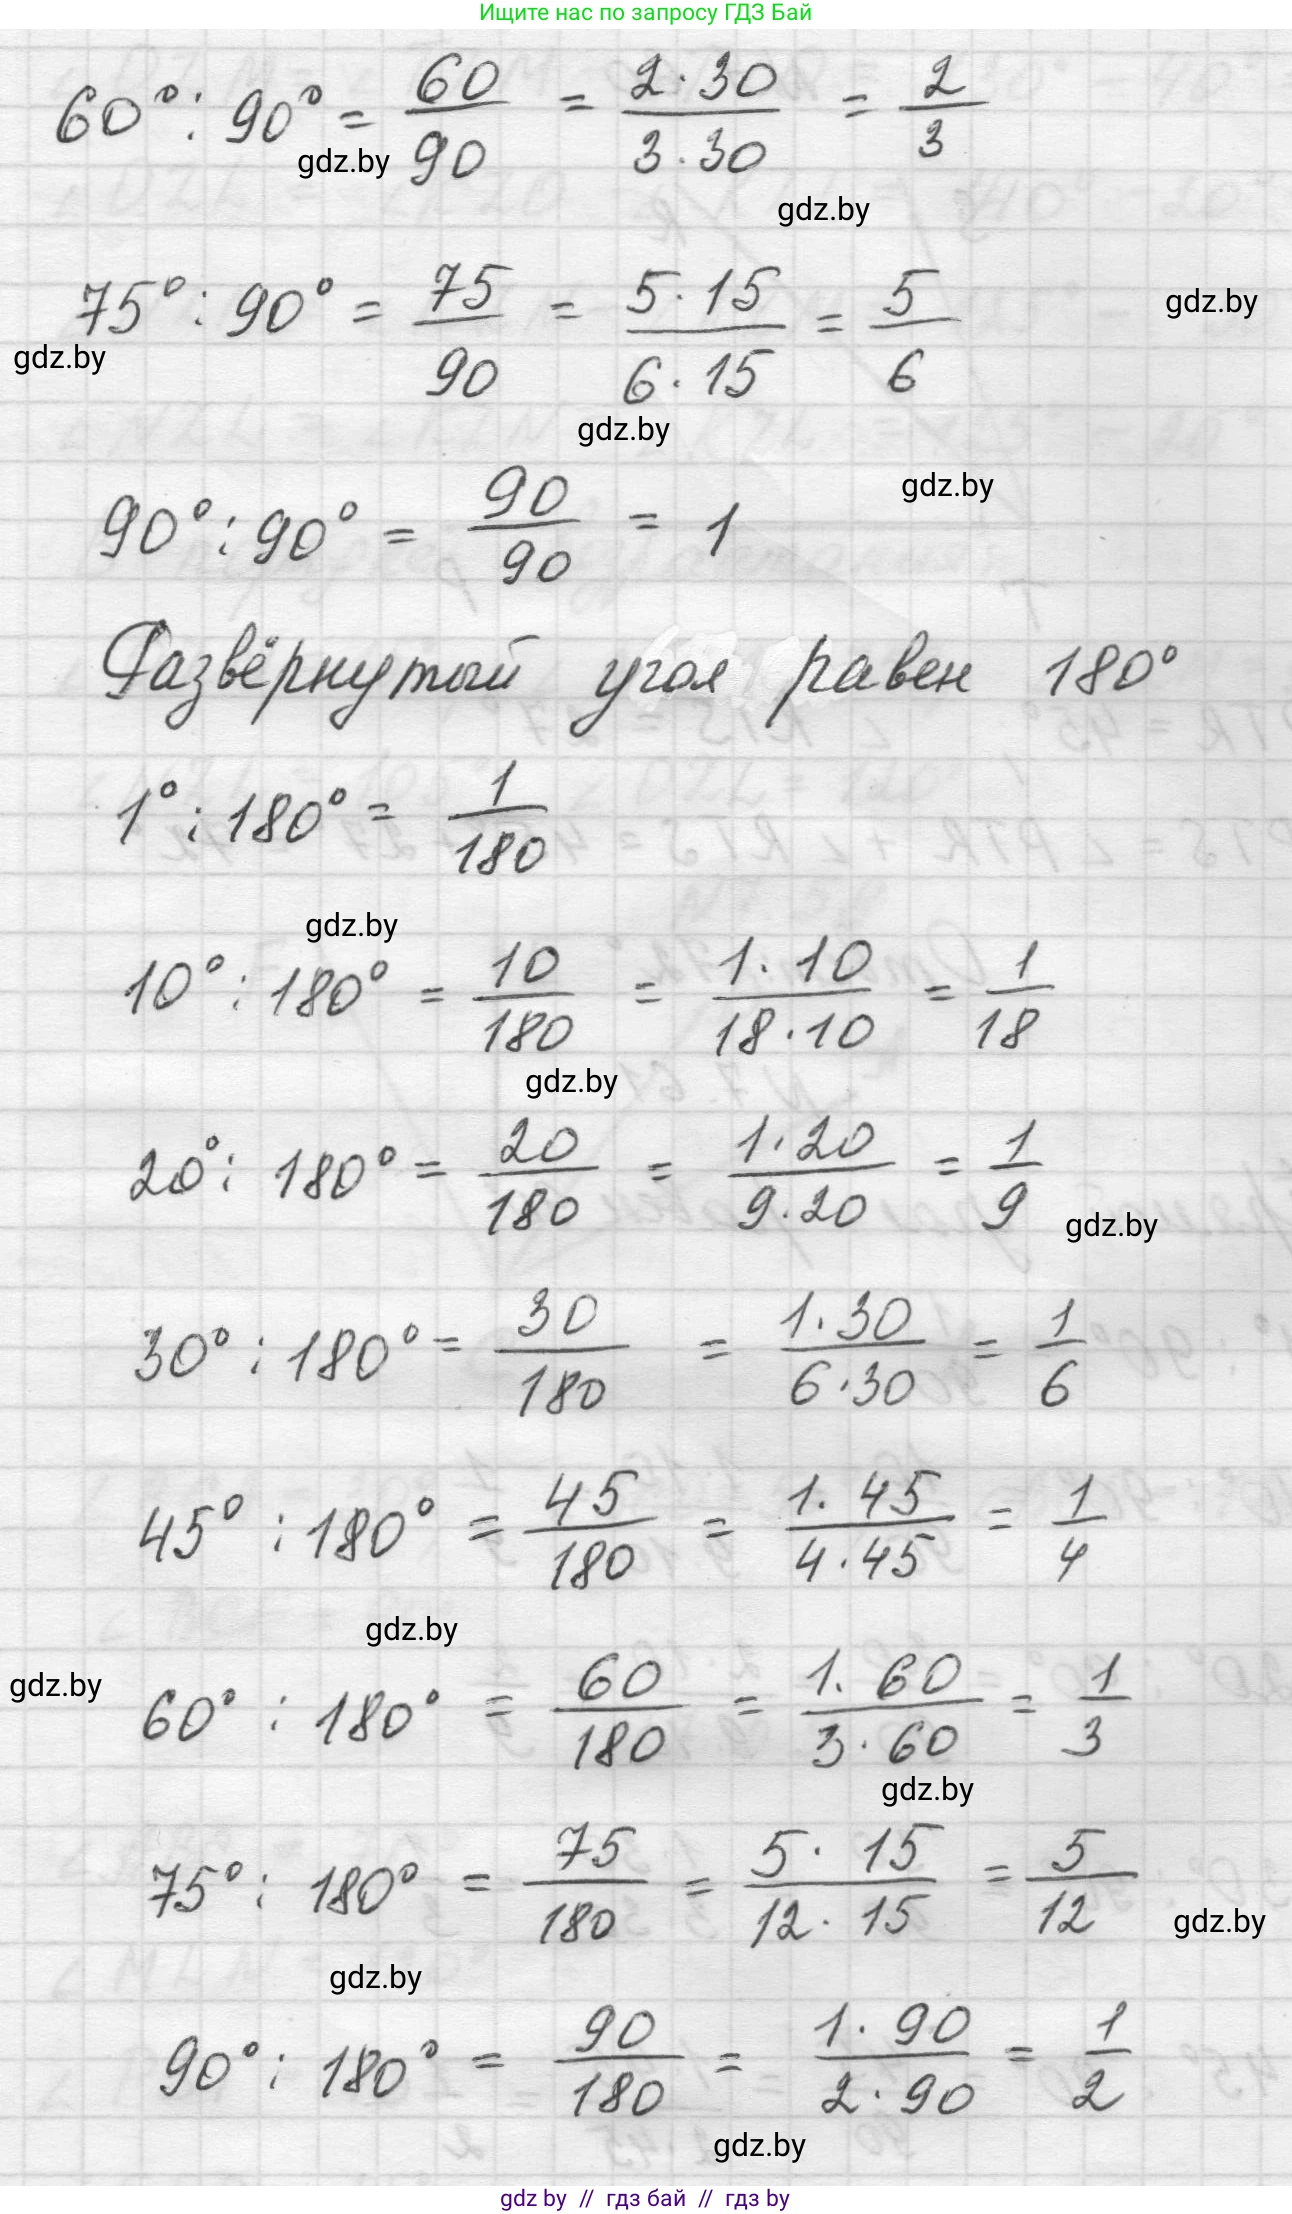 Ищите нас по запросу ГДЗ Бай
60° : 90° = 60/90 = 2·30/3·30 = 2/3
gdz.by
gdz.by
75° : 90° = 75/90 = 5·15/6·15 = 5/6
gdz.by
gdz.by
gdz.by
90° : 90° = 90/90 = 1
gdz.by
Развёрнутый угол равен 180°
1° : 180° = 1/180
gdz.by
10° : 180° = 10/180 = 1·10/18·10 = 1/18
gdz.by
20° : 180° = 20/180 = 1·20/9·20 = 1/9
gdz.by
30° : 180° = 30/180 = 1·30/6·30 = 1/6
45° : 180° = 45/180 = 1·45/4·45 = 1/4
gdz.by
gdz.by
60° : 180° = 60/180 = 1·60/3·60 = 1/3
gdz.by
75° : 180° = 75/180 = 5·15/12·15 = 5/12
gdz.by
gdz.by
90° : 180° = 90/180 = 1·90/2·90 = 1/2
gdz.by
gdz by // гдз бай // гдз by